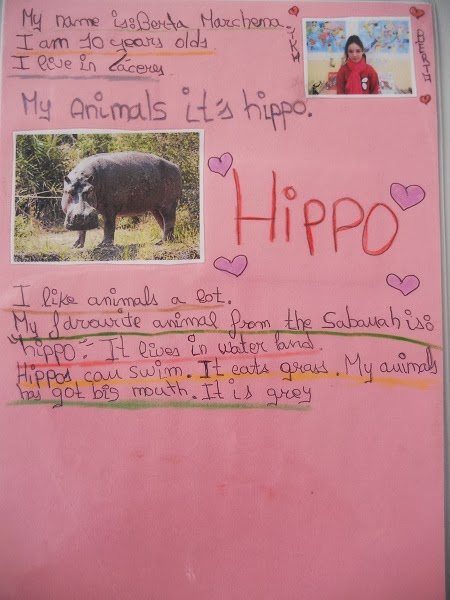 My name is: Berta Marchena.
I am 10 years olds
I live in Cáceres
BERTA
My Animals it's hippo.
HIPPO
I like animals a lot.
My favourite animal from the Sabanah is:
"hippo". It lives in water land.
Hippos can swim. It eats grass. My animals
has got big mouth. It is grey